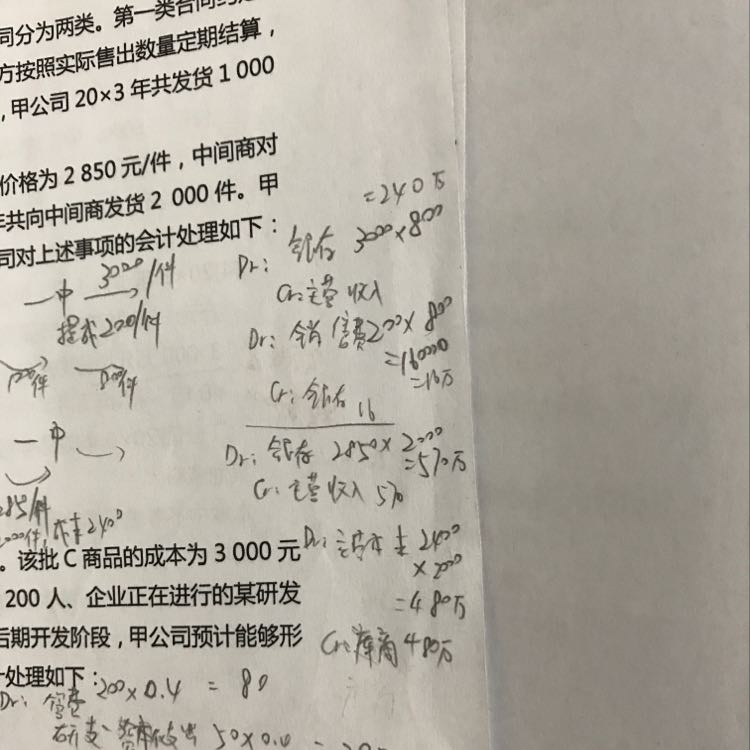 司分为两类。第一类合同约定
方按照实际售出数量定期结算，
，甲公司 20×3 年共发货 1 000
价格为 2 850 元/件，中间商对
年共向中间商发货 2 000 件。甲
司对上述事项的会计处理如下：
=240万
Dr: 银存 3000×800
Cr: 主营收入
Dr: 销售费 200×800
=160000
=16万
Cr: 银存 16
3000/件
一中
提成200/件
Dr: 银存 2850×2000
=570万
Cr: 主营收入 570
一中
285/件
成本2400
Dr: 主营本 2400
×2000
=480万
Cr: 库商 480万
。该批 C 商品的成本为 3 000 元
200 人、企业正在进行的某研发
后期开发阶段，甲公司预计能够形
计处理如下：
Dr: 管费 200×0.4 = 80
研支-资本化支出 50×0.4 = 20